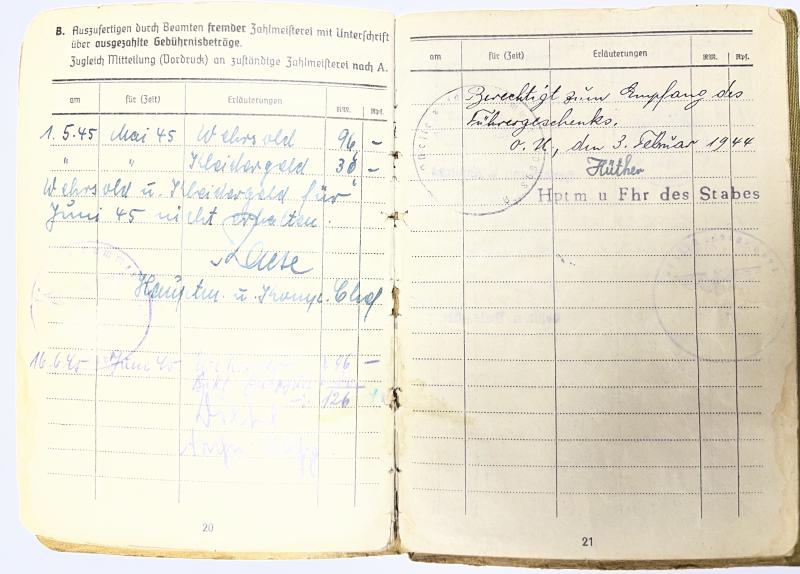 B. Auszufertigen durch Beamten fremder Zahlmeisterei mit Unterschrift
über ausgezahlte Gebührnisbeträge.
Zugleich Mitteilung (Vordruck) an zuständige Zahlmeisterei nach A.
am für (Zeit) Erläuterungen RM. Rpf.
1.5.45 Mai 45 Wehrsold 96 –
" " Kleidergeld 30 –
Wehrsold u. Kleidergeld für
Juni 45 nicht erhalten.
Hauptm. u. Komp. Chef
16.6.45 Juni 45 96 –
126
20
am für (Zeit) Erläuterungen RM. Rpf.
Berechtigt zum Empfang des
Führergeschenks.
O.U., den 3. Februar 1944
Hüther
Hptm u Fhr des Stabes
21